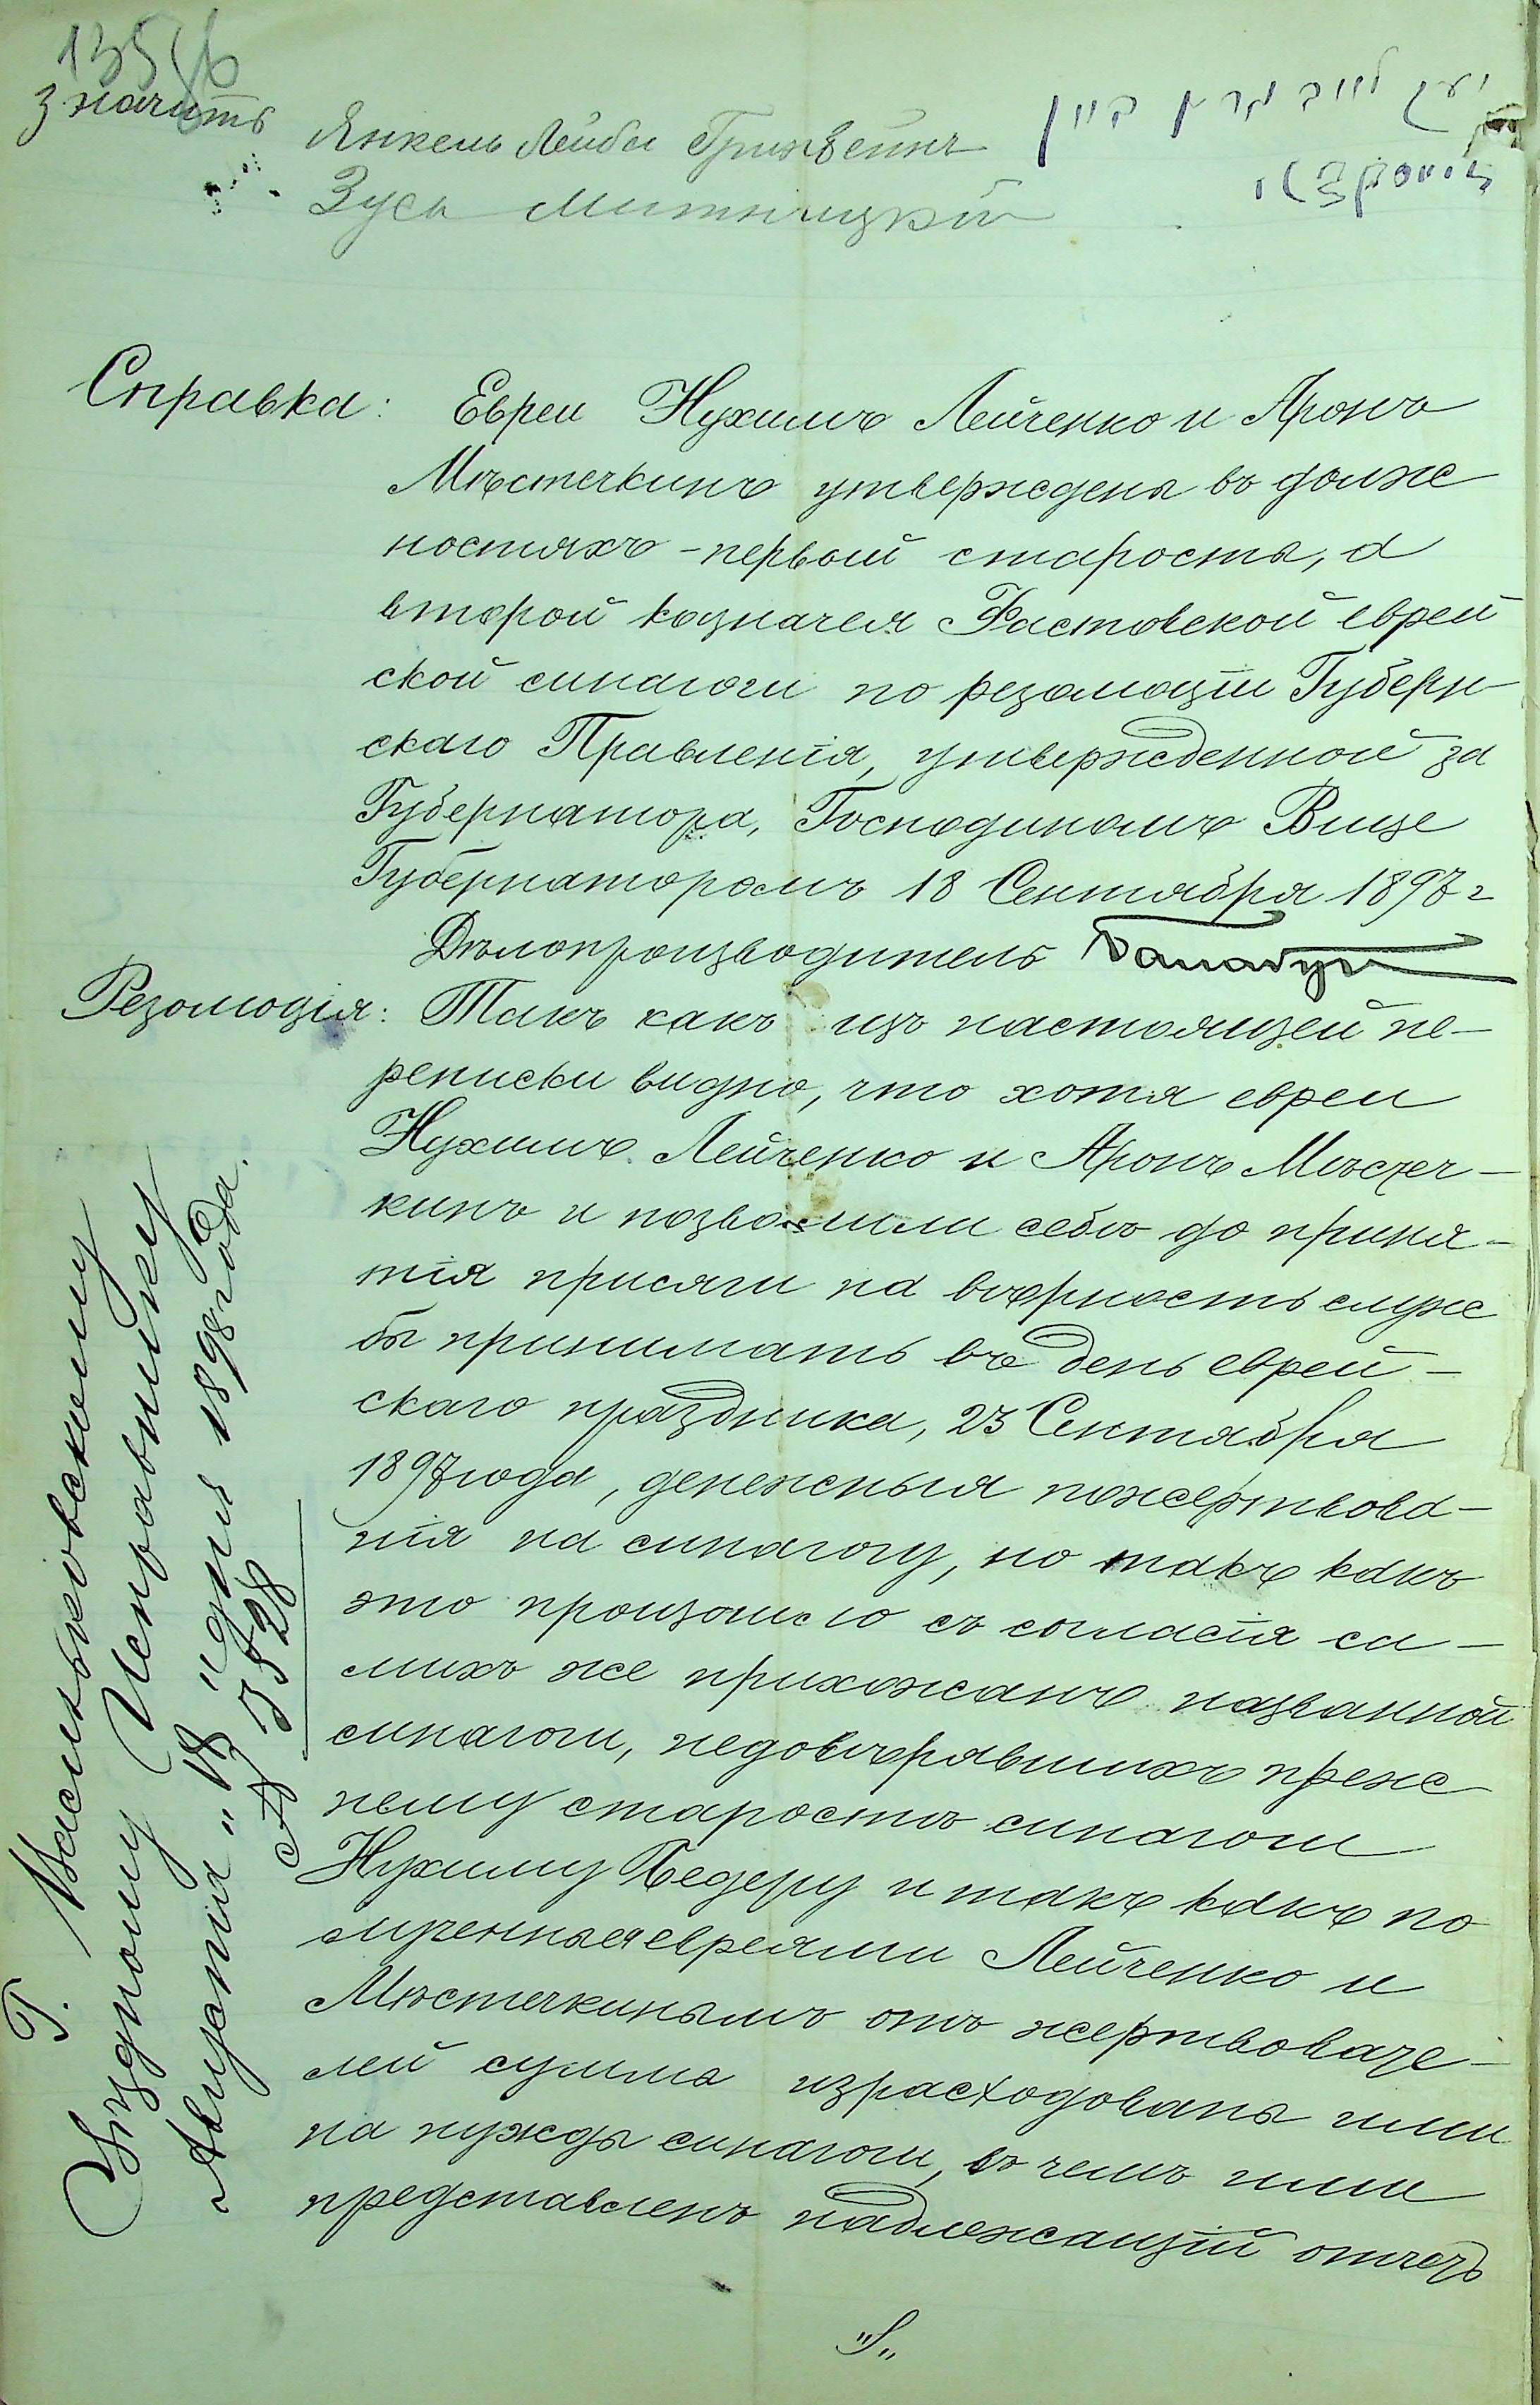 значитъ
Янкель Лейба Гринвейнъ
Зусь Митницкій
Справка: Евреи Нухимъ Лейченко и Аронъ
Мѣстечкинъ утверждены въ долж
ностяхъ - первый старосты, а
второй казначея Фастовской еврей
ской синагоги по резолюціи Губерн
скаго Правленія, утвержденной за
Губернатора, Господиномъ Вице
Губернаторомъ 18 Сентября 1897 г
Дѣлопроизводитель
Резолюція: Такъ какъ изъ настоящей пе-
реписки видно, что хотя евреи
Нухимъ Лейченко и Аронъ Мѣстеч-
кинъ и позволили себѣ до приня-
тія присяги на вѣрность служ
бы принимать въ день еврей-
скаго праздника, 25 Сентября
1897 года, денежныя пожертвова-
нія на синагогу, но такъ какъ
это произошло съ согласія са-
михъ же прихожанъ названной
синагоги, недовѣрявшихъ преж
нему старостѣ синагоги
Нухиму Бедеру и такъ какъ по
лученныя евреями Лейченко и
Мѣстечкинымъ отъ жертвовате-
лей суммы израсходованы ими
на нужды синагоги, въ чемъ ими
представленъ надлежащій отчетъ
Г. Васильковскому
Уѣздному Исправнику
Августа "18" дня 1898 года.
№ 3528